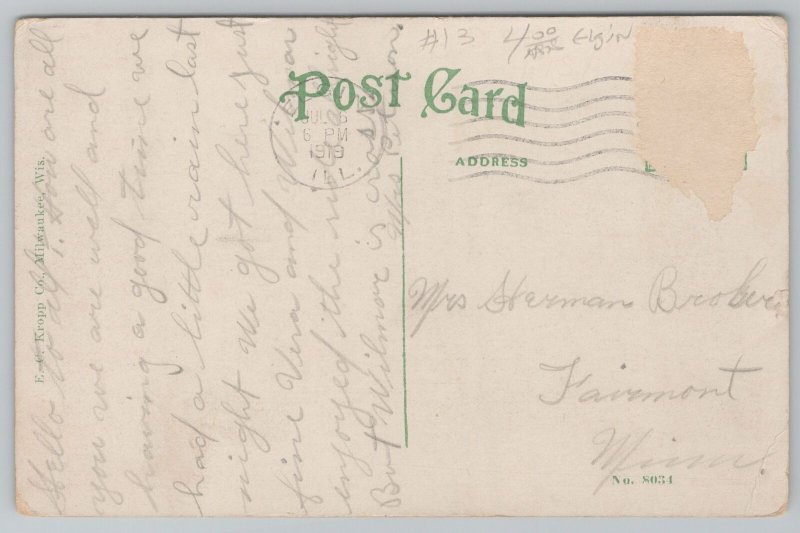 #13 4.00 Elgin
POST CARD
JUL 6
6 PM
1919
ILL.
ADDRESS
E. C. Kropp Co., Milwaukee, Wis.
Hello to all. How are all
you we are well and
having a good time we
had a little rain last
night We got here just
fine Vera and Wilmar
enjoyed the ride alright
But Wilmore is cross
Mrs Peterson.
Mrs Herman Broker
Fairmont
Minn.
No. 8034